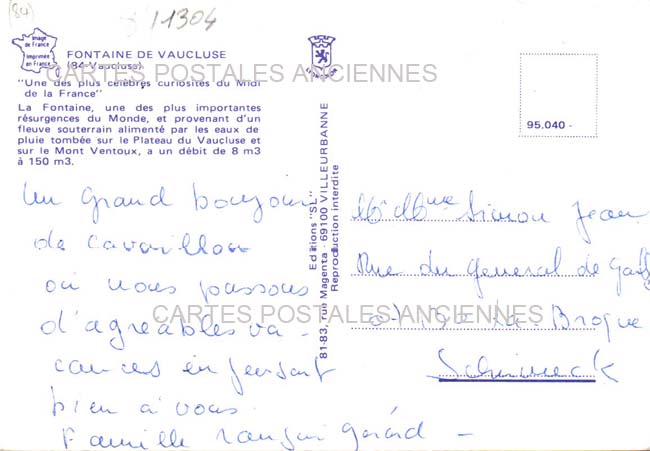 (84)
11304
Image
de France
Imprimée
en France
FONTAINE DE VAUCLUSE
(84-Vaucluse)
CARTES POSTALES ANCIENNES
"Une des plus célèbres curiosités du Midi
de la France"
La Fontaine, une des plus importantes
résurgences du Monde, et provenant d'un
fleuve souterrain alimenté par les eaux de
pluie tombée sur le Plateau du Vaucluse et
sur le Mont Ventoux, a un débit de 8 m3
à 150 m3.
Un grand bonjour
de Cavaillon
où nous passons
d'agréables va-
cances en pensant
bien à vous
Famille Gérard -
CARTES POSTALES ANCIENNES
Editions "SL"
81-83, rue Magenta - 69100 VILLEURBANNE
Reproduction interdite
SL
95.040 -
Mr Mme Simon Jean
Rue du General de
La Broque
Schirmeck